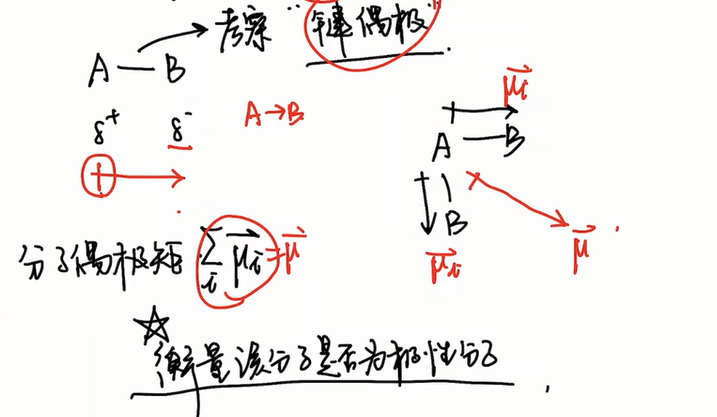 考察 "键偶极"
A — B
δ⁺ δ⁻
A→B
μ⃗ᵢ
A — B
B
μ⃗ᵢ
μ⃗
分子偶极矩 ∑ᵢ μ⃗ᵢ = μ⃗
☆
衡量该分子是否为极性分子